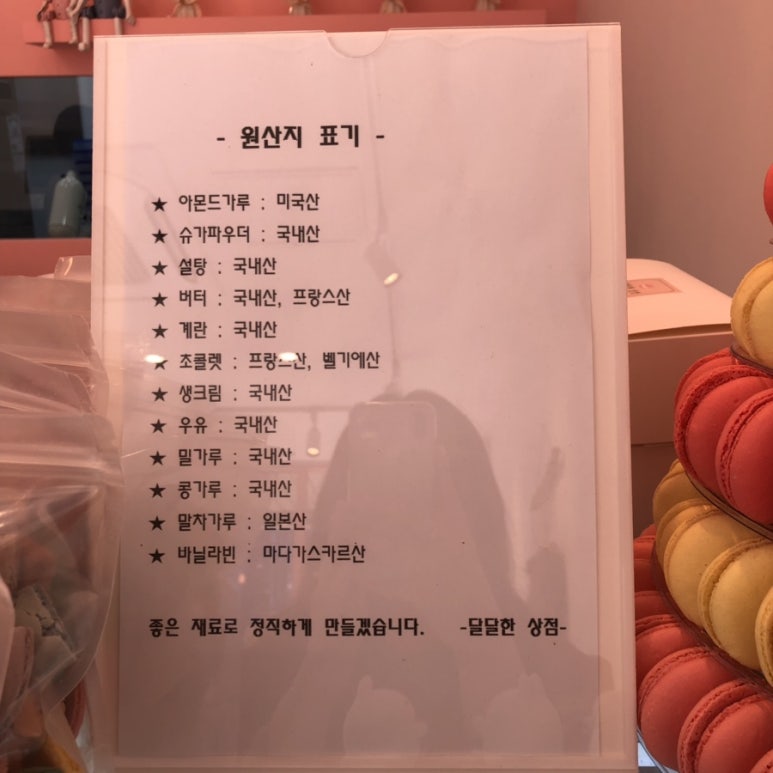 - 원산지 표기 -
★ 아몬드가루 : 미국산
★ 슈가파우더 : 국내산
★ 설탕 : 국내산
★ 버터 : 국내산, 프랑스산
★ 계란 : 국내산
★ 초콜렛 : 프랑스산, 벨기에산
★ 생크림 : 국내산
★ 우유 : 국내산
★ 밀가루 : 국내산
★ 콩가루 : 국내산
★ 말차가루 : 일본산
★ 바닐라빈 : 마다가스카르산
좋은 재료로 정직하게 만들겠습니다. -달달한 상점-